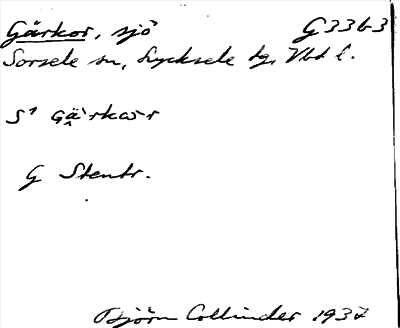 Gärkor, sjö G33b3
Sorsele sn, Lycksele tg, Vbt l.
S¹ Gä̀rkår
G Stentr.
Björn Collinder 1937